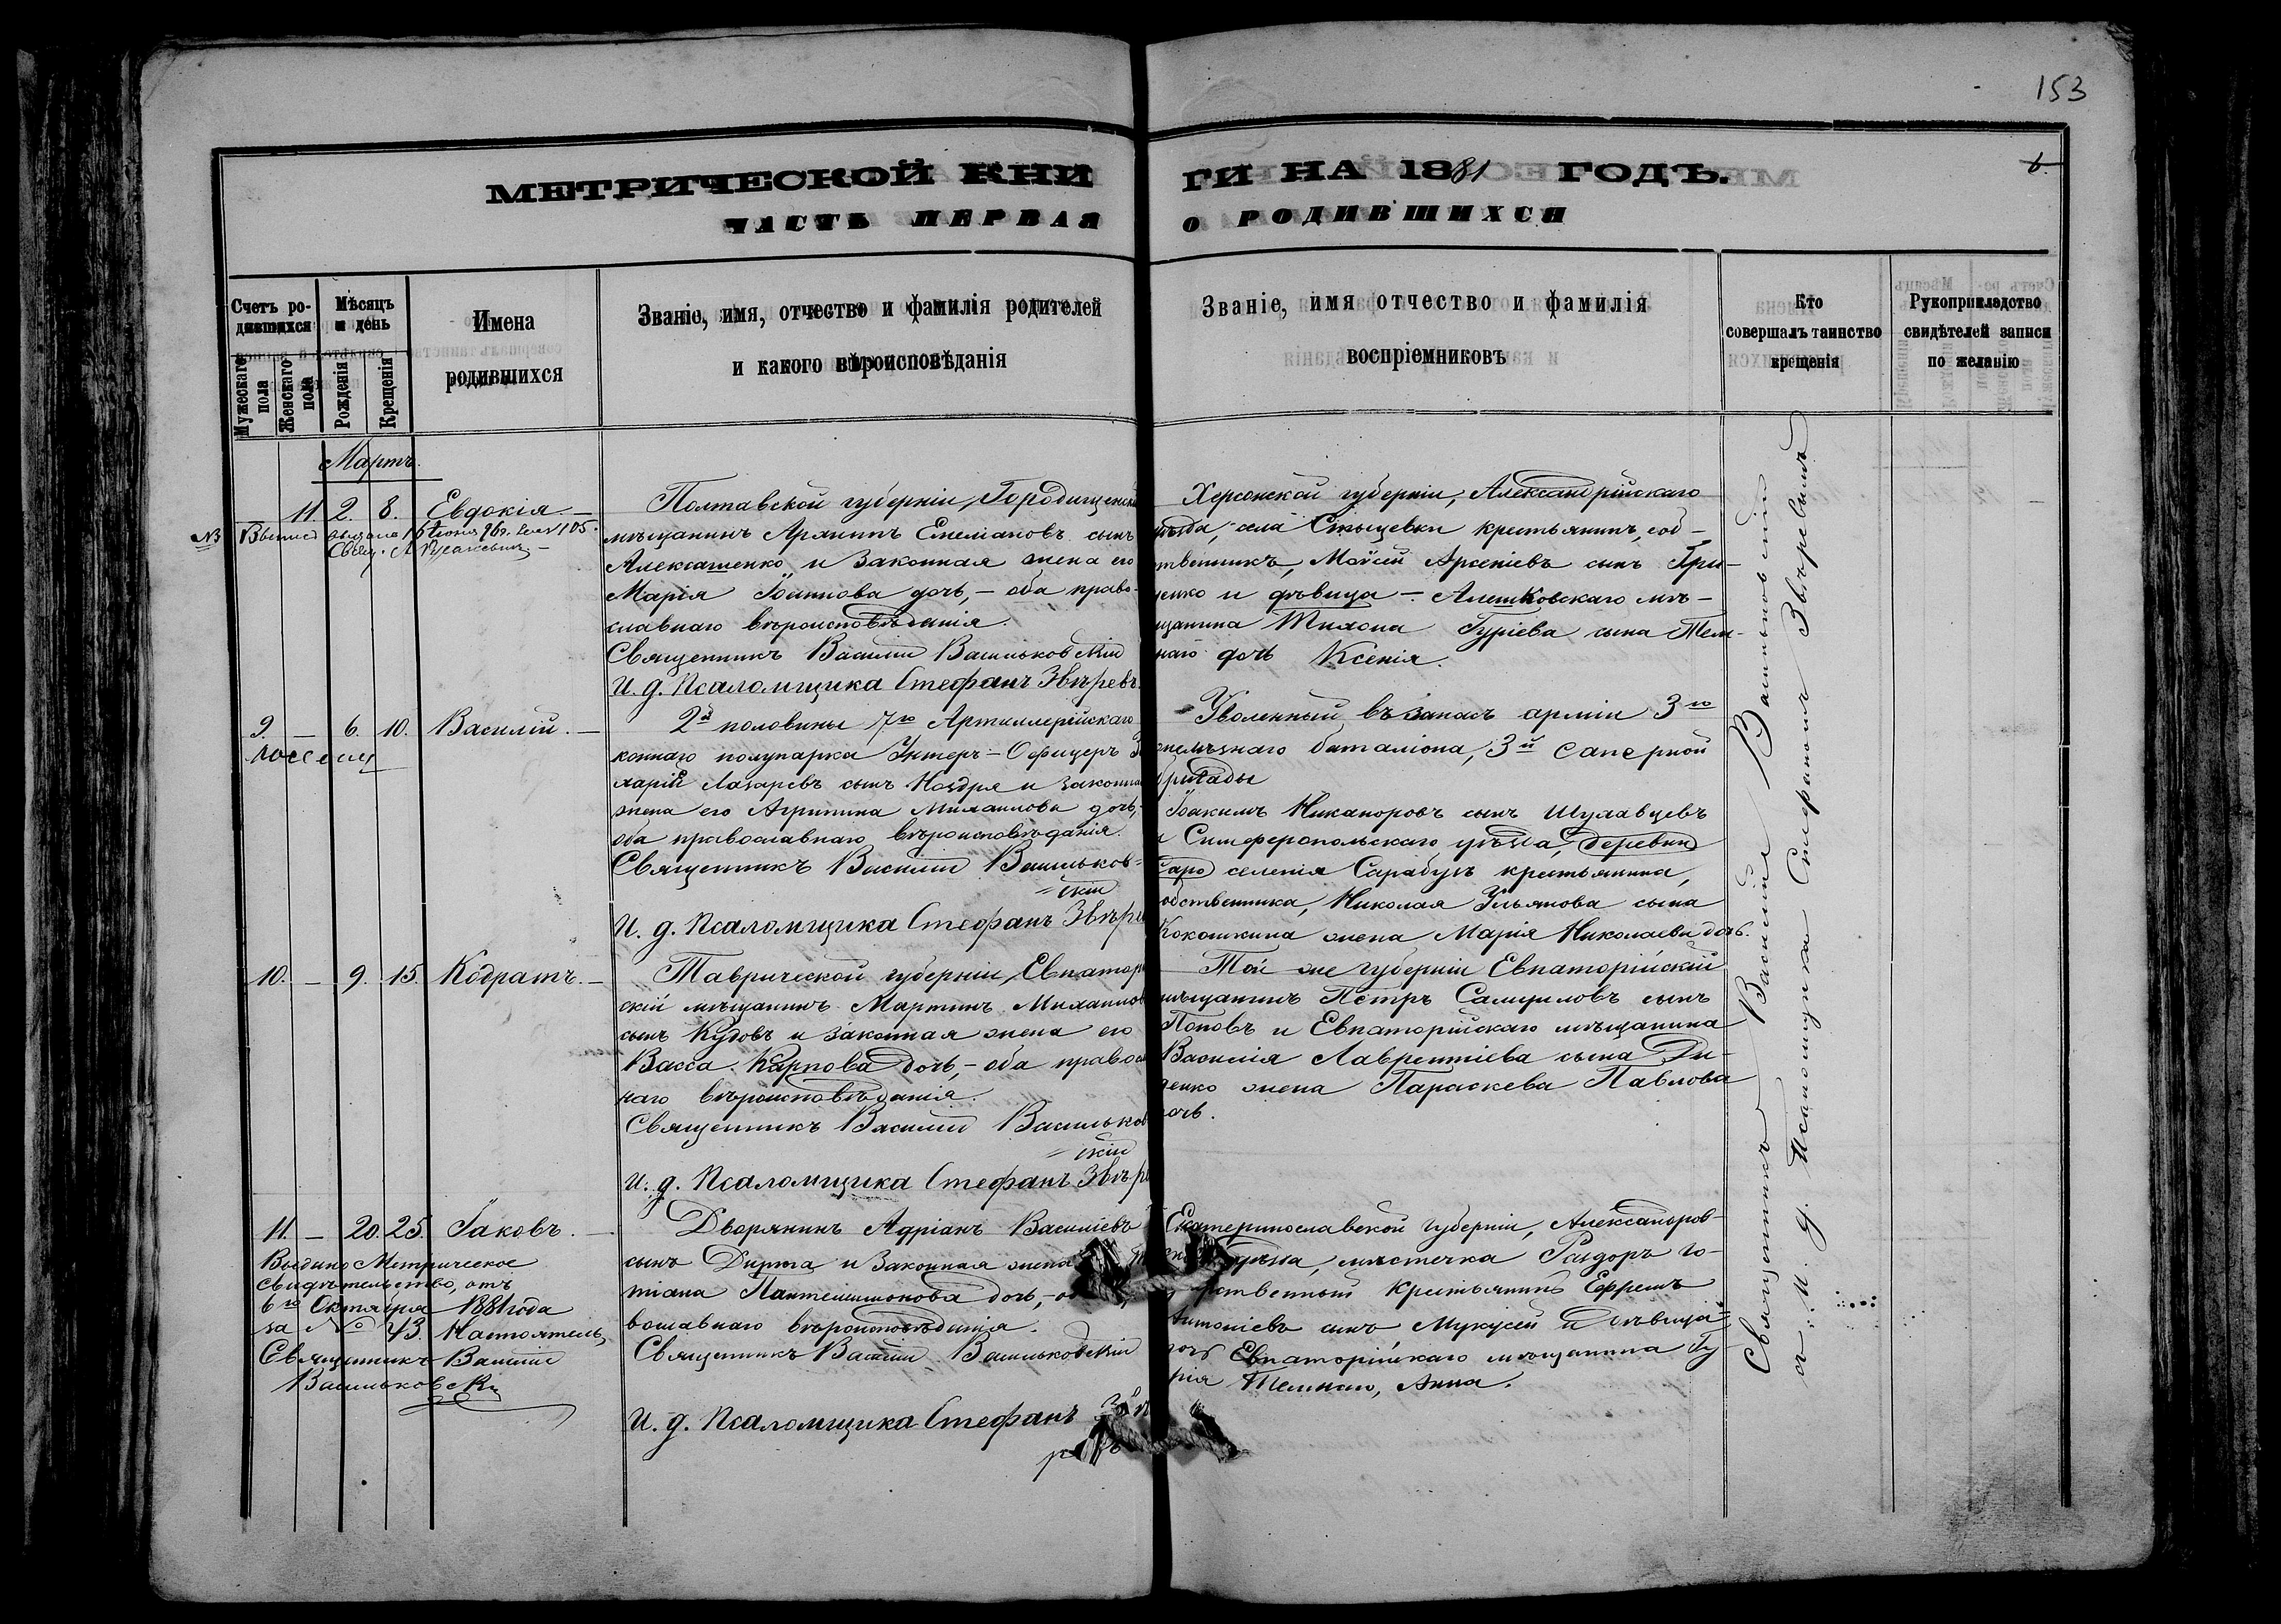 153
МЕТРИЧЕСКОЙ КНИГИ НА 1881 ГОДЪ.
6.
ЧАСТЬ ПЕРВАЯ О РОДИВШИХСЯ
Счетъ родившихся
Мужескаго пола
Женскаго пола
Мѣсяцъ и день
Рожденія
Крещенія
Имена
родившихся
Званіе, имя, отчество и фамилія родителей
и какого вѣроисповѣданія
Званіе, имя отчество и фамилія
воспріемниковъ
Кто
совершалъ таинство
крещенія
Рукоприкладство
свидѣтелей записи
по желанію
Мартъ.
11. 2. 8. Евдокія.
Полтавской губерніи, Городищенскій
мѣщанинъ Еmеліановъ сынъ
Алексашенко и законная жена его
Марія Іоаннова дочь, – оба право-
славнаго вѣроисповѣданія.
Священникъ Василій Васильковскій
И. д. Псаломщика Стефанъ Звѣревъ.
Херсонской губерніи, Александрійскаго
уѣзда, села крестьянинъ, соб-
ственникъ, Моѵсей Арсеніевъ сынъ Гри-
ценко и дѣвица – Алешковскаго мѣ-
щанина Тихона Гуріева сына Тем-
наго дочь Ксенія.
9. – 6. 10. Василій. –
2й половины 7го Артиллерійскаго
коннаго полупарка Унтеръ-Офицеръ
ларій Лазаревъ сынъ Ноздря и законная
жена его Агрипина Михаилова дочь, –
оба православнаго вѣроисповѣданія.
Священникъ Василій Васильков-
скій
И. д. Псаломщика Стефанъ Звѣре
Уволенный въ запасъ арміи 3го
баталіона, 3й саперной
бригады
Іоакимъ Никаноровъ сынъ Шулавцевъ
и Симферопольскаго уѣзда, деревни
селенія Сарабузъ крестьянина,
собственника, Николая Ульянова сына
Кокошкина жена Марія Николаева дочь.
10. – 9. 15. Кодратъ. –
Таврической губерніи, Евпатор
скій мѣщанинъ Мартинъ Михаилов
сынъ Кудовъ и законная жена его
Васса Карпова дочь, – оба правосл
наго вѣроисповѣданія.
Священникъ Василій Васильков
скій
И. д. Псаломщика Стефанъ Звѣре
Той же губерніи Евпаторійскій
мѣщанинъ Петръ Самуиловъ сынъ
Поповъ и Евпаторійскаго мѣщанина
Василія Лаврентіева сына Ди-
денко жена Параскева Павлова
дочь.
11. – 20. 25. Іаковъ. –
Выдано Метрическое
свидѣтельство, отъ
6го Октября 1881 года
за № 43. Настоятель,
Священникъ Василій
Васильковскій
Дворянинъ Адріанъ Василіевъ
сынъ и законная жена
тіана Пантелеимонова дочь, –
вославнаго вѣроисповѣданія.
Священникъ Василій Васильковскій
И. д. Псаломщика Стефанъ Звѣ
ревъ
Екатеринославской губерніи, Александров-
уѣзда, мѣстечка Раздоръ го-
рственный крестьянинъ Ефремъ
Антоніевъ сынъ и дѣвица
дочь Евпаторійскаго мѣщанина Гу
рія Темнаго, Анна.
Священникъ Василій Васильковскій
и. д. Псаломщика Стефаномъ Звѣревымъ